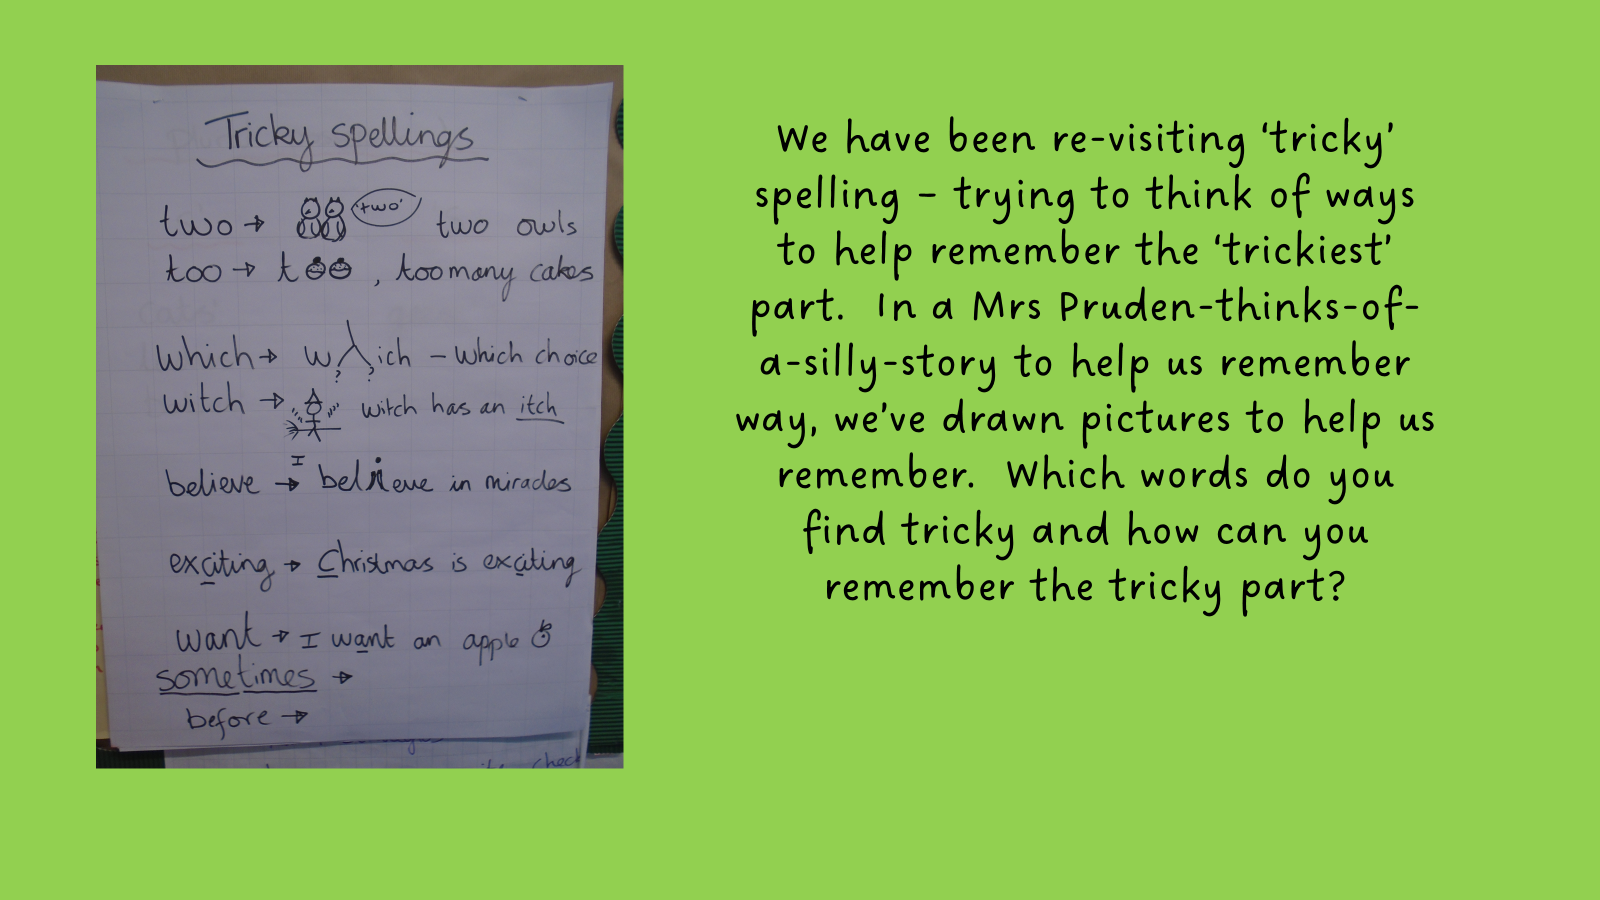 Tricky spellings
two → 'two' two owls
too → t , too many cakes
which → w ich – which choice
? ?
witch → witch has an itch
I
believe → believe in miracles
exciting → Christmas is exciting
want → I want an apple
sometimes →
before →
check
We have been re-visiting ‘tricky’
spelling – trying to think of ways
to help remember the ‘trickiest’
part. In a Mrs Pruden-thinks-of-
a-silly-story to help us remember
way, we’ve drawn pictures to help us
remember. Which words do you
find tricky and how can you
remember the tricky part?